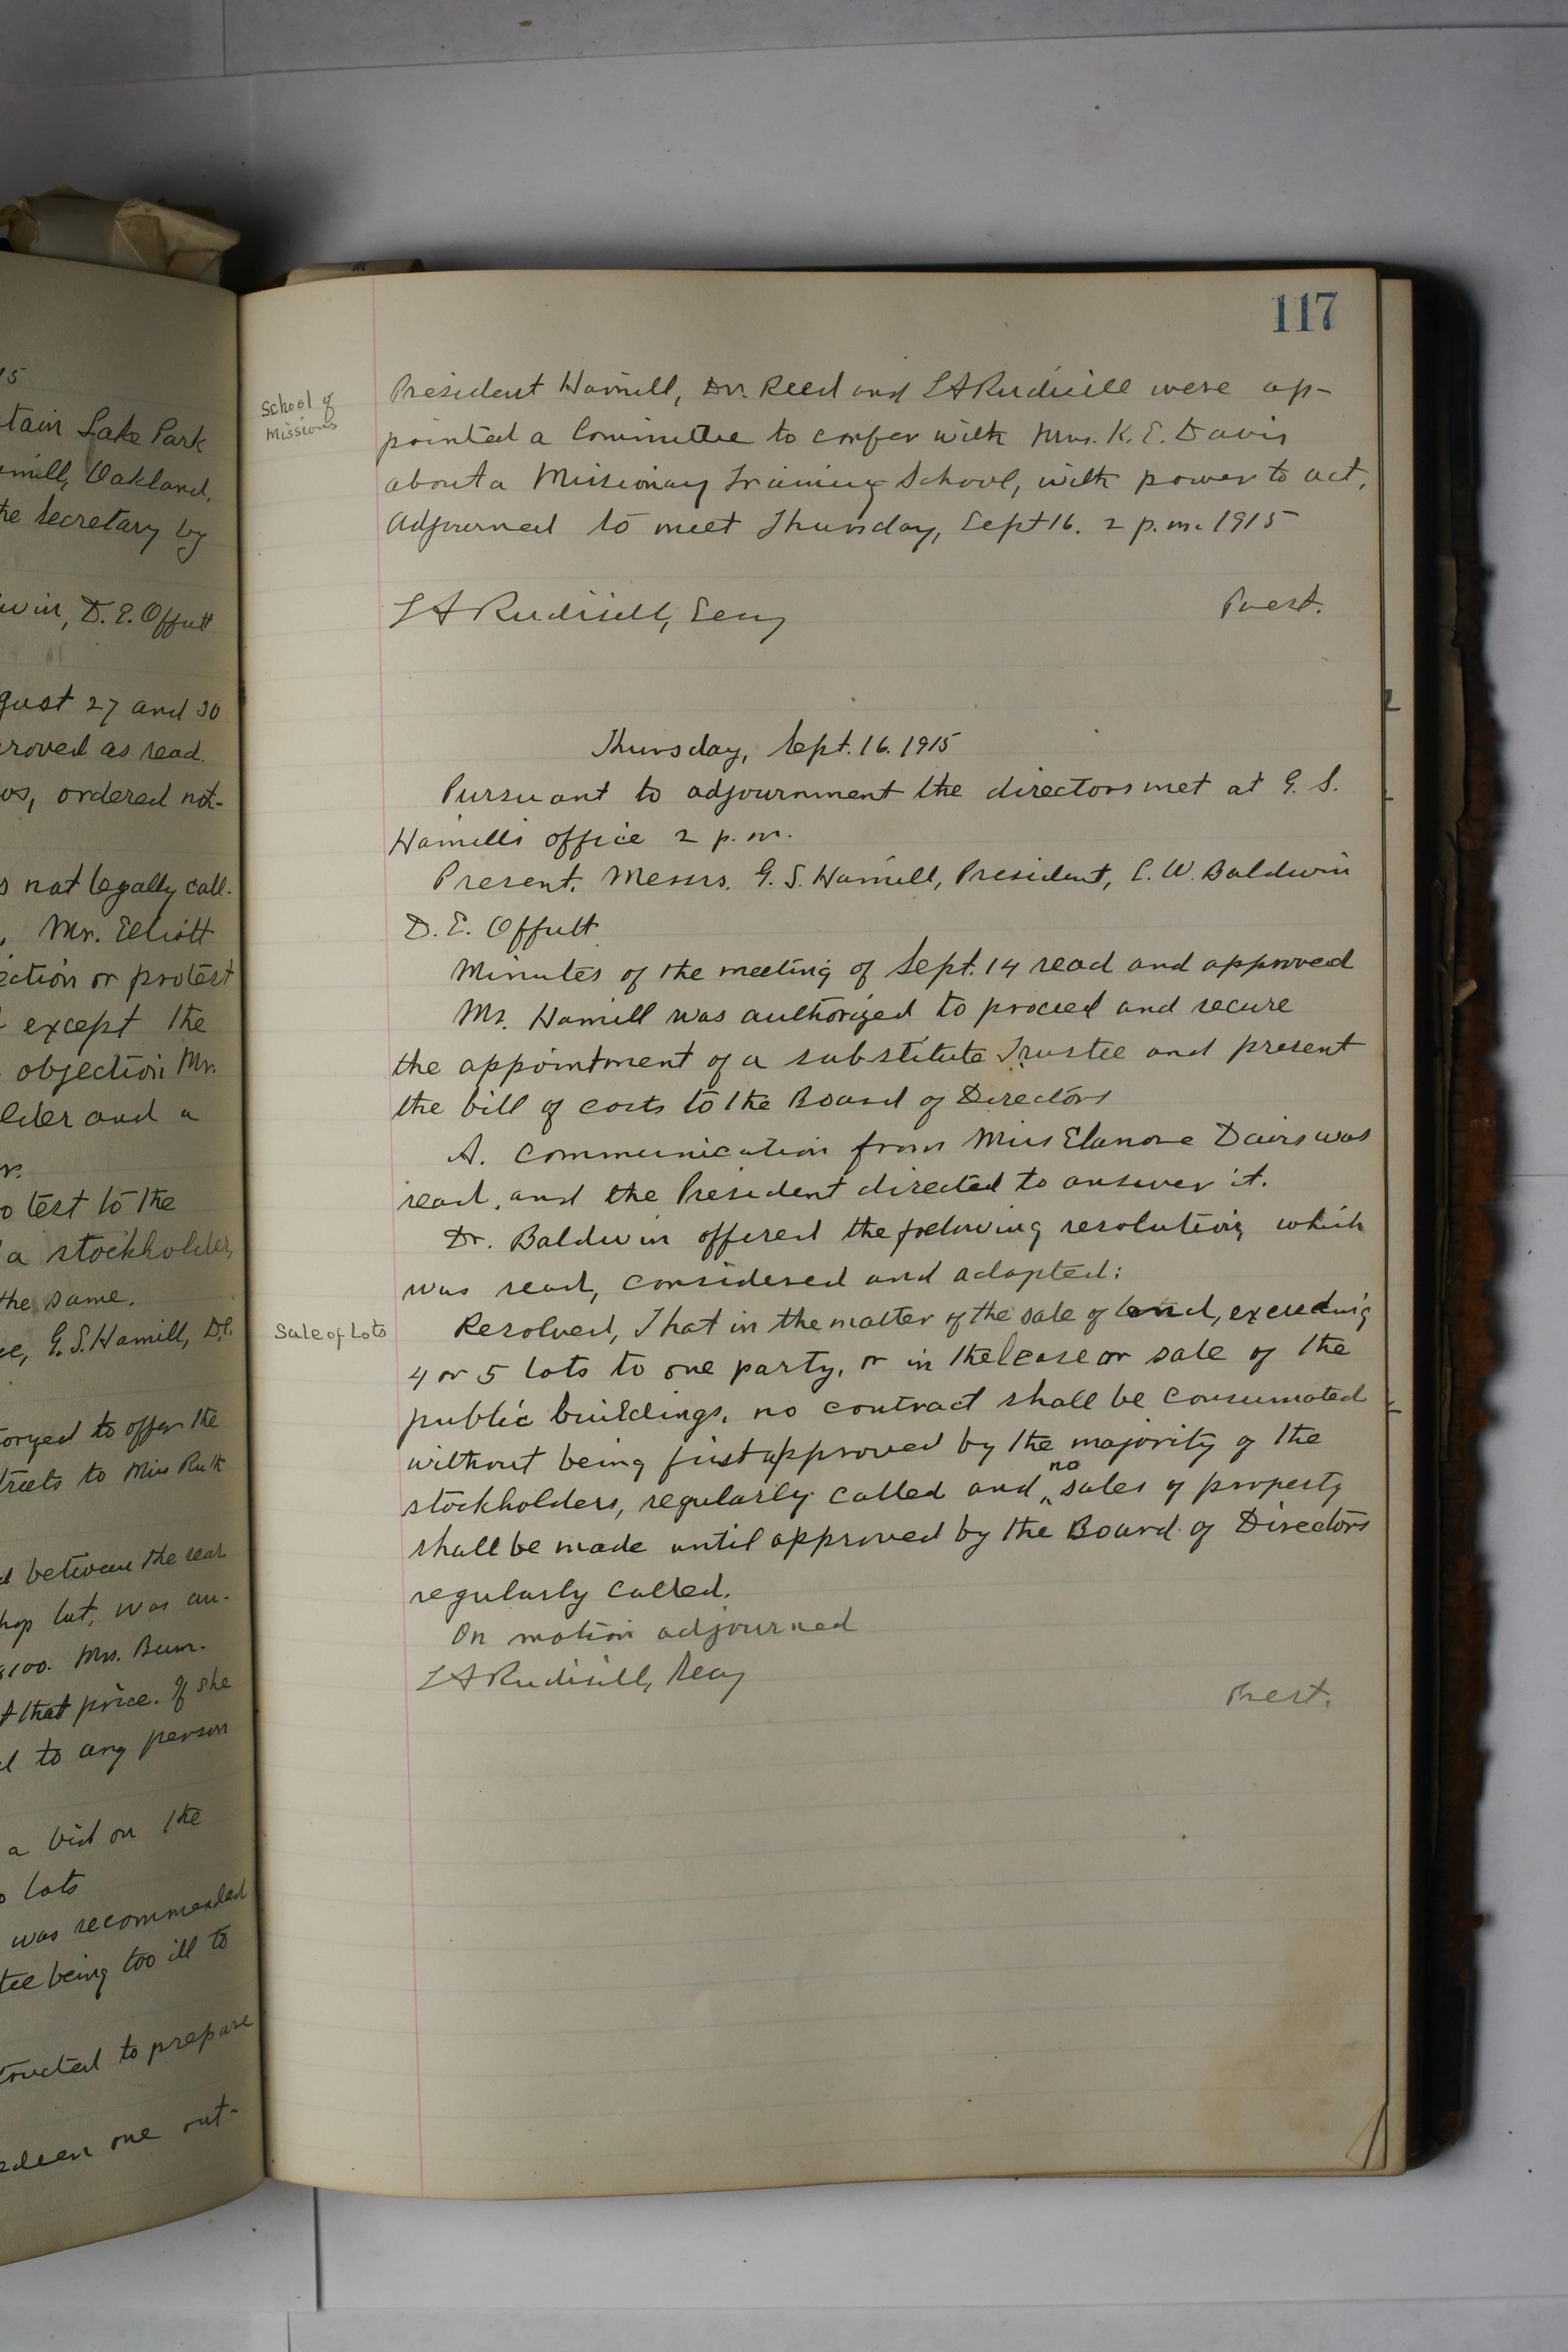 15
tain Lake Park
mill, Oakland,
he Secretary by
win, D. E. Offutt
gust 27 and 30
roved as read.
os, ordered not-
s not legally call-
, Mr. Elliott
ection or protest
except the
objection Mr.
lder and a
r.
o test to the
a stockholder,
the same.
ce, G. S. Hamill, D.E.
orized to offer the
treets to Miss Ruth
d between the rear
hop lot, was au-
$100. Mrs. Bum-
t that price. If she
l to any person
a bid on the
o lots
was recommended
tee being too ill to
tructed to prepare
one out-
117
School of
Missions
President Hamill, Dr. Reed and L A Rudisill were ap-
pointed a Committee to confer with Mrs. K. E. Davis
about a Missionary Training School, with power to act,
Adjourned to meet Thursday, Sept 16. 2 p.m. 1915
L A Rudisill, Secy
Prest.
Thursday, Sept. 16. 1915
Pursuant to adjournment the directors met at G. S.
Hamills office 2 p.m.
Present. Messrs. G. S. Hamill, President, C. W. Baldwin
D. E. Offutt
Minutes of the meeting of Sept. 14 read and approved
Mr. Hamill was authorized to proceed and secure
the appointment of a substitute Trustee and present
the bill of costs to the Board of Directors
A. communication from Miss Elanore Davis was
read, and the President directed to answer it.
Dr. Baldwin offered the following resolution, which
was read, considered and adopted:
Sale of Lots
Resolved, That in the matter of the sale of land, exceeding
4 or 5 lots to one party, or in the lease or sale of the
public buildings, no contract shall be consumated
without being first approved by the majority of the
stockholders, regularly called and no sales of property
shall be made until approved by the Board of Directors
regularly called.
On motion adjourned
L A Rudisill, Secy
Prest.